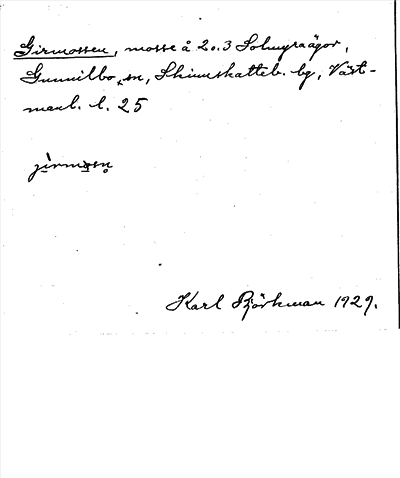 Girmossen, mosse å 2 o. 3 Solmyraägor,
Gunnilbo sn, Skinnskatteb. bg, Väst-
manl. l. 25
jirmosn
Karl Björkman 1929.